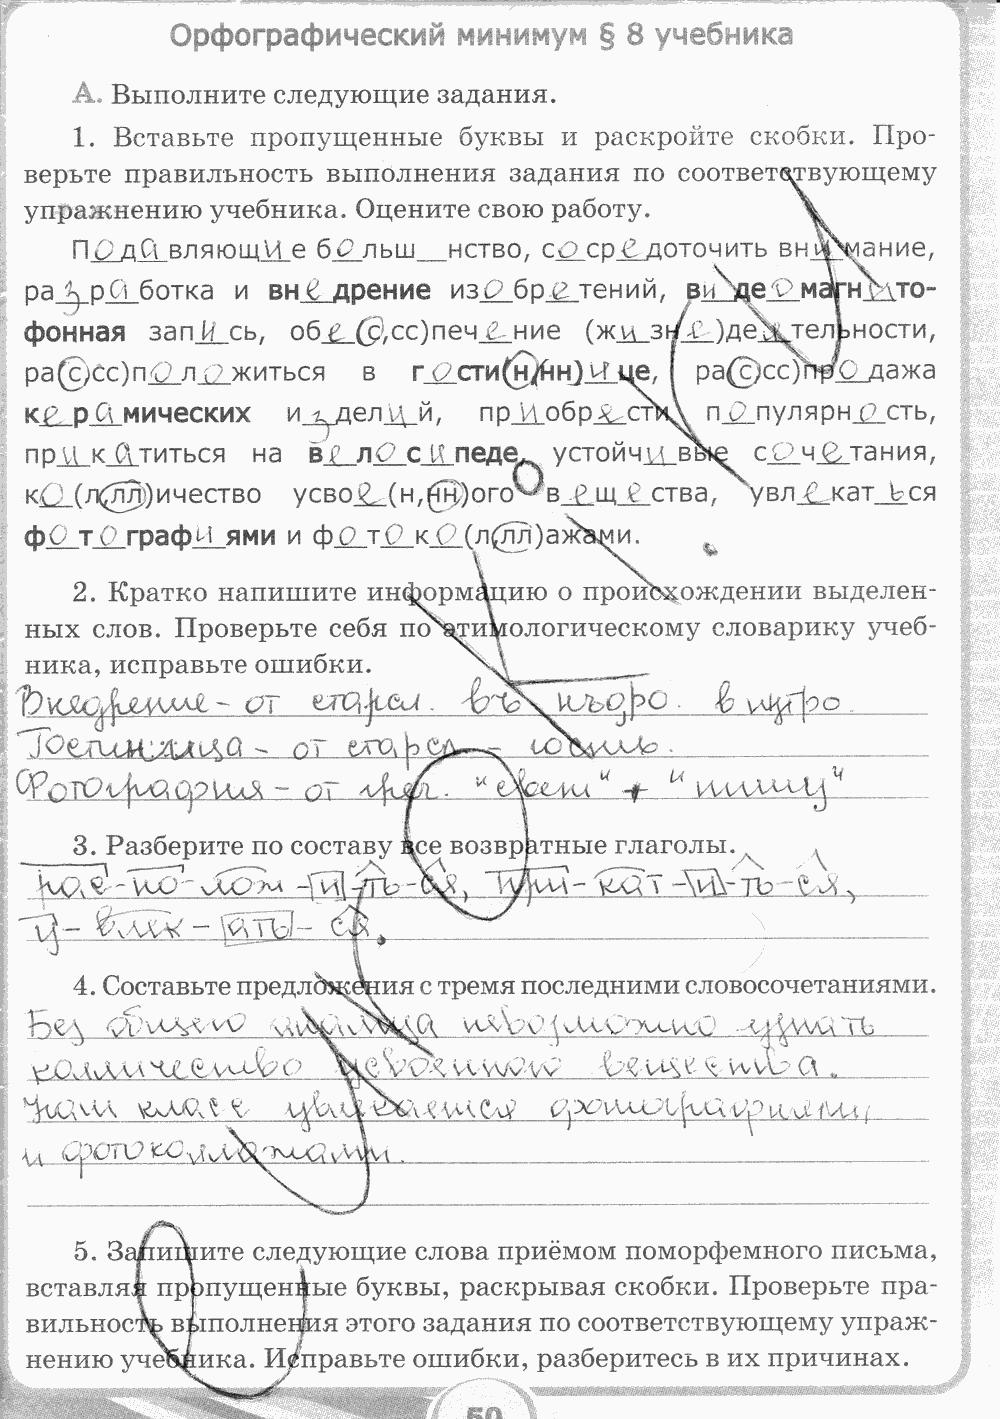 Орфографический минимум § 8 учебника
А. Выполните следующие задания.
1. Вставьте пропущенные буквы и раскройте скобки. Про-
верьте правильность выполнения задания по соответствующему
упражнению учебника. Оцените свою работу.
Подавляющие больш__нство, сосредоточить внимание,
разработка и внедрение изобретений, видеомагнито-
фонная запись, обе(с,сс)печение (жизне)деятельности,
ра(с,сс)положиться в гости(н,нн)ице, ра(с,сс)продажа
керамических изделий, приобрести популярность,
прикатиться на велосипеде, устойчивые сочетания,
ко(л,лл)ичество усвое(н,нн)ого вещества, увлекаться
фотографиями и фотоко(л,лл)ажами.
2. Кратко напишите информацию о происхождении выделен-
ных слов. Проверьте себя по этимологическому словарику учеб-
ника, исправьте ошибки.
Внедрение - от старсл. въ нъдро. в
Гостинница - от старсл -
Фотография - от греч. "свет" + "пишу"
3. Разберите по составу все возвратные глаголы.
рас-по-лож-и-ть-ся, при-кат-и-ть-ся,
у-влек-ать-ся.
4. Составьте предложения с тремя последними словосочетаниями.
Без общего анализа невозможно узнать
колличество усвоенного вещества.
Наш класс увлекается фотографиями
и фотоколлажами.
5. Запишите следующие слова приёмом поморфемного письма,
вставляя пропущенные буквы, раскрывая скобки. Проверьте пра-
вильность выполнения этого задания по соответствующему упраж-
нению учебника. Исправьте ошибки, разберитесь в их причинах.
50